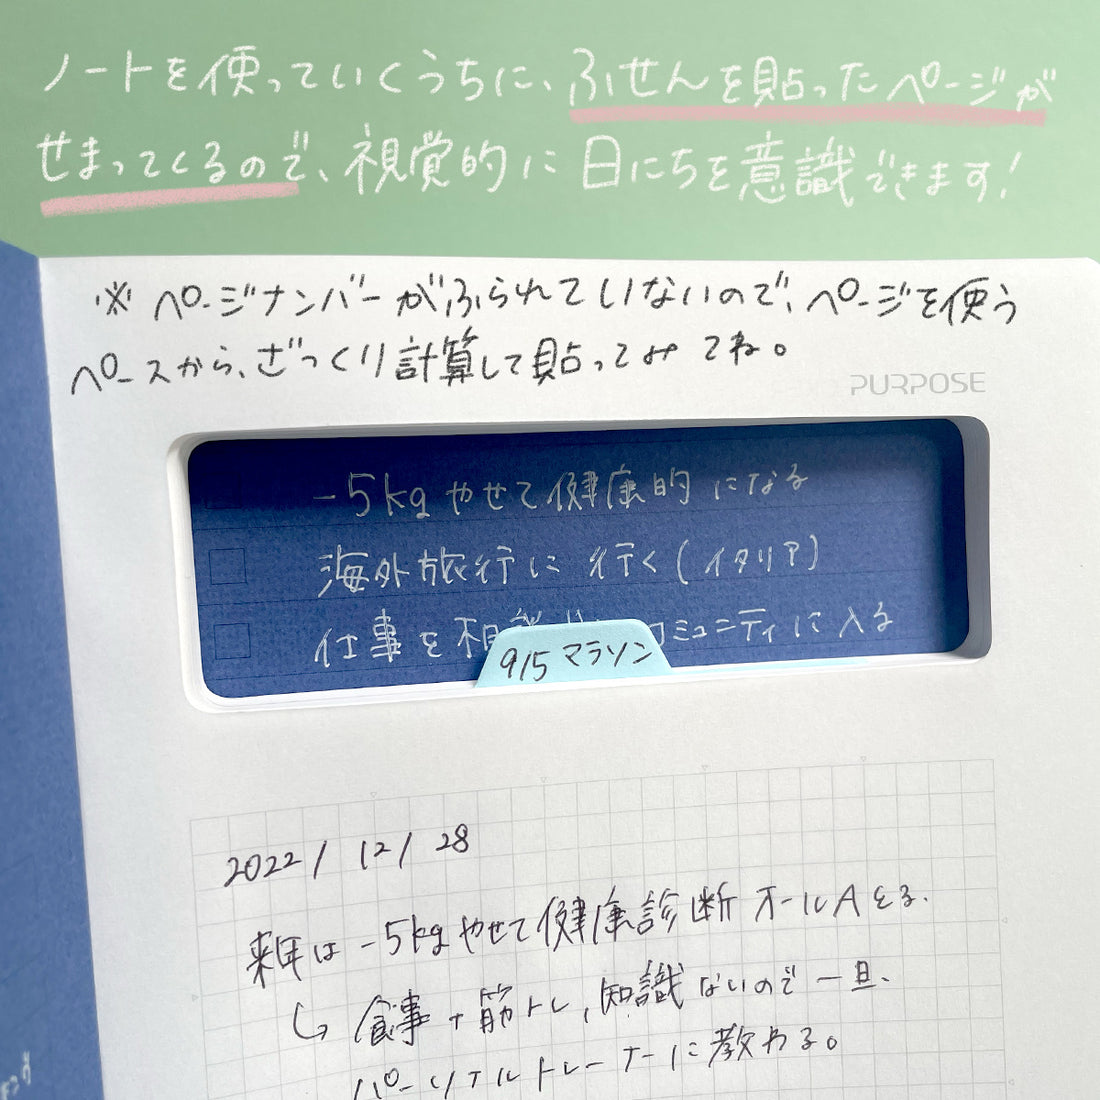 ノートを使っていくうちに、ふせんを貼ったページが
せまってくるので、視覚的に日にちを意識できます!
※ページナンバーがふられていないので、ページを使う
ペースから、ざっくり計算して貼ってみてね。
PURPOSE
-5kgやせて健康的になる
海外旅行に行く(イタリア)
仕事を コミュニティに入る
9/5マラソン
2022/12/28
来年は-5kgやせて健康診断オールAとる.
↳食事+筋トレ,知識ないので一旦、
パーソナルトレーナーに教わる。